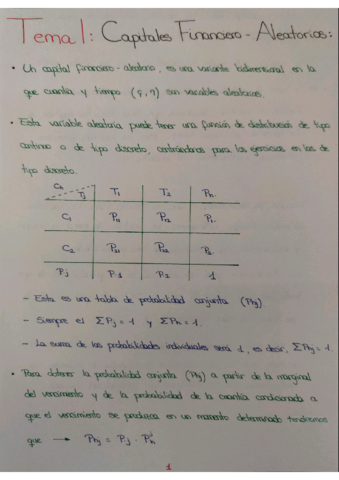 Tema 1: Capitales Financiero - Aleatorios:
• Un capital financiero-aleatorio, es una variante bidimensional en la
que cuantía y tiempo (ξ, η) son variables aleatorias.
• Esta variable aleatoria puede tener una función de distribución de tipo
continuo o de tipo discreto, centrándonos para los ejercicios en los de
tipo discreto.
Ch Tj T1 T2 Ph.
C1 P11 P12 P1.
C2 P21 P22 P2.
Pj P.1 P.2 1
- Esta es una tabla de probabilidad conjunta (Phj)
- Siempre el ΣPj = 1 y ΣPh = 1.
- La suma de las probabilidades individuales será 1, es decir, ΣPhj = 1.
• Para obtener la probabilidad conjunta (Phj) a partir de la marginal
del vencimiento y de la probabilidad de la cuantía condicionada a
que el vencimiento se produzca en un momento determinado tendremos
que → Phj = P.j · P^j_h
1